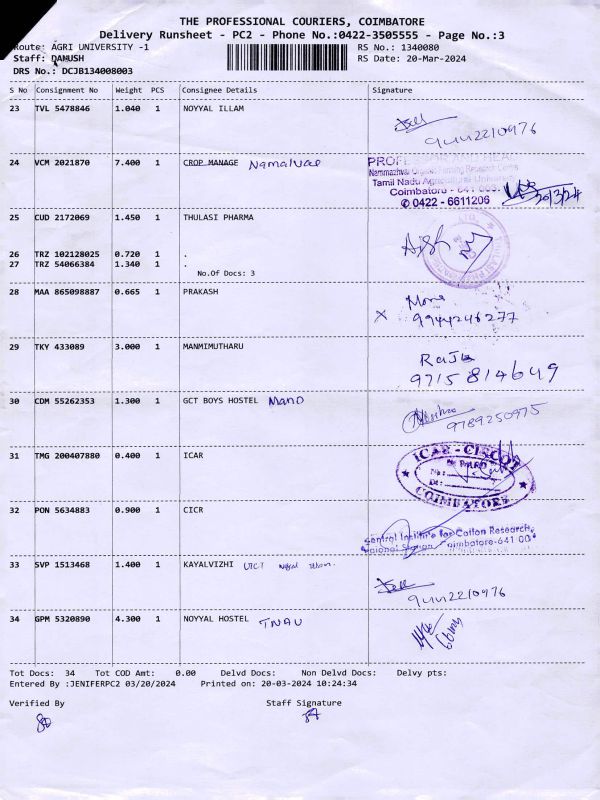 THE PROFESSIONAL COURIERS, COIMBATORE
Delivery Runsheet - PC2 - Phone No.:0422-3505555 - Page No.:3
Route: AGRI UNIVERSITY -1 RS No.: 1340080
Staff: DANUSH RS Date: 20-Mar-2024
DRS No.: DCJB134008003
S No Consignment No Weight PCS Consignee Details Signature
23 TVL 5478846 1.040 1 NOYYAL ILLAM
9442210976
24 VCM 2021870 7.400 1 CROP MANAGE Namalvar
PROFESSOR AND HEAD
Nammazhvar Organic Farming Research Centre
Tamil Nadu Agricultural University
Coimbatore - 641 003.
✆ 0422 - 6611206 20/3/24
25 CUD 2172069 1.450 1 THULASI PHARMA
26 TRZ 102128025 0.720 1 .
27 TRZ 54066384 1.340 1 .
No.Of Docs: 3
28 MAA 865098887 0.665 1 PRAKASH
x 9944246277
29 TKY 433089 3.000 1 MANMIMUTHARU
Raja
9715814649
30 CDM 55262353 1.300 1 GCT BOYS HOSTEL Mano
9789250975
31 TMG 200407880 0.400 1 ICAR
ICAR - CIRCOT
COIMBATORE
32 PON 5634883 0.900 1 CICR
Central Institute for Cotton Research,
Regional Station Coimbatore-641 003
33 SVP 1513468 1.400 1 KAYALVIZHI
9442210976
34 GPM 5320890 4.300 1 NOYYAL HOSTEL TNAU
Tot Docs: 34 Tot COD Amt: 0.00 Delvd Docs: Non Delvd Docs: Delvy pts:
Entered By :JENIFERPC2 03/20/2024 Printed on: 20-03-2024 10:24:34
Verified By Staff Signature